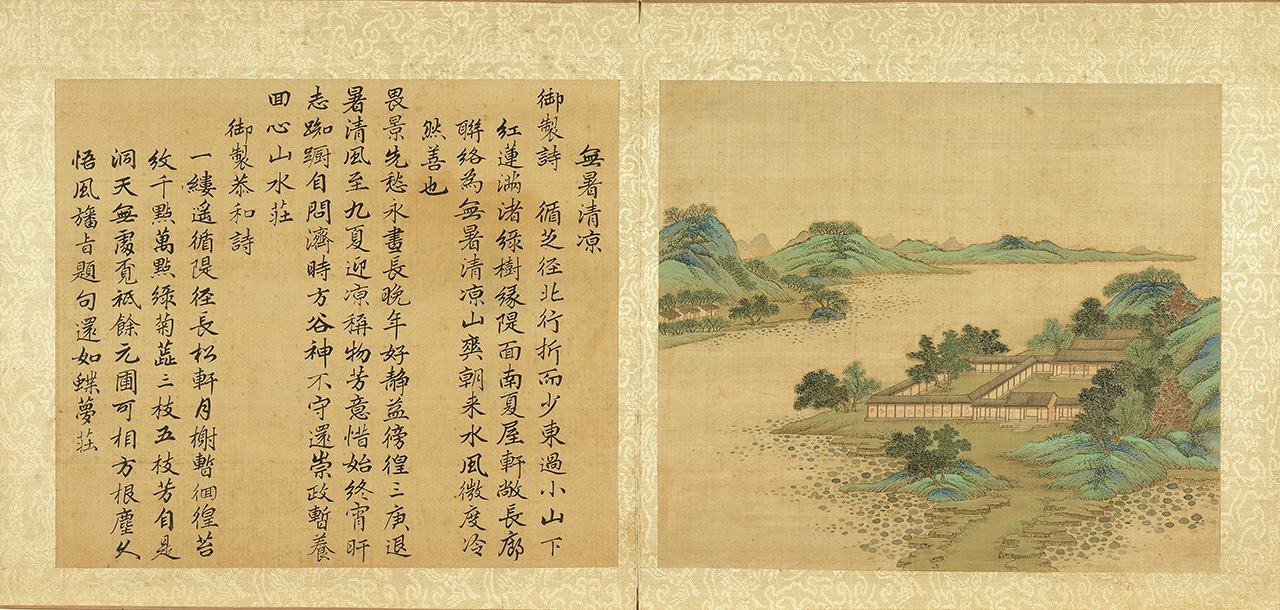 無暑清凉
御製詩　循芝径北行折而少東過小山下
紅蓮滿渚綠樹緣隄面南夏屋軒敞長廊
聯絡為無暑清凉山爽朝来水風微度冷
然善也
畏景先愁永晝長晚年好静益徬徨三庚退
暑清風至九夏迎凉稱物芳意惜始終宵旰
志踟蹰自問濟時方谷神不守還崇政暫養
回心山水莊
御製恭和詩
一縷遥循隄径長松軒月榭暫徊徨苔
紋千點萬點綠菊蕋三枝五枝芳自是
洞天無處覓祗餘元圃可相方根塵久
悟風旛旨題句還如蝶夢莊